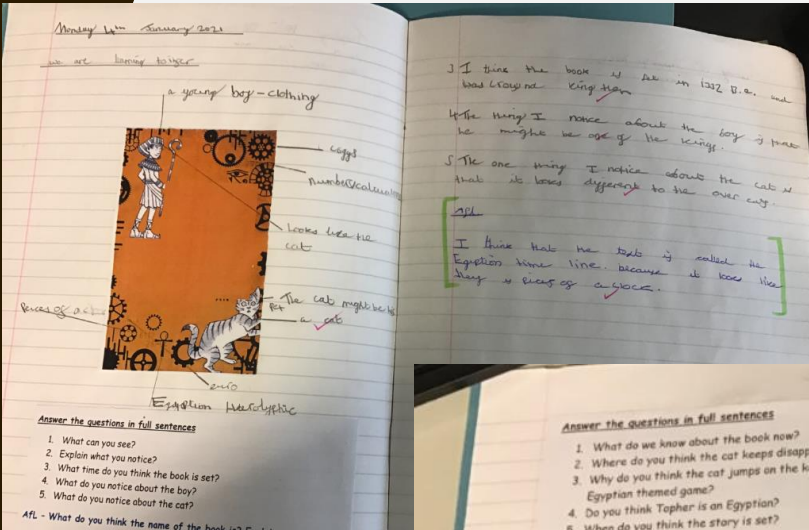 Monday 4th January 2021
we are learning to infer
a young boy - clothing
coggs
Looks like the
cat
The cat might be
Pet
a cat
Peices of a
Egyption
Answer the questions in full sentences
1. What can you see?
2. Explain what you notice?
3. What time do you think the book is set?
4. What do you notice about the boy?
5. What do you notice about the cat?
AfL - What do you think the name of the book is?
3 I think the book is set in 1332 B.C. and
was around king
4 The thing I notice about the boy is that
he might be one of the kings.
5 The one thing I notice about the cat is
that it looks different to the over cats.
AfL
I think that the text is called the
Egyption time line because it looks like
they is pieces of a clock.
Answer the questions in full sentences
1. What do we know about the book now?
2. Where do you think the cat keeps disapp
3. Why do you think the cat jumps on the k
Egyptian themed game?
4. Do you think Topher is an Egyptian?
5. When do you think the story is set?